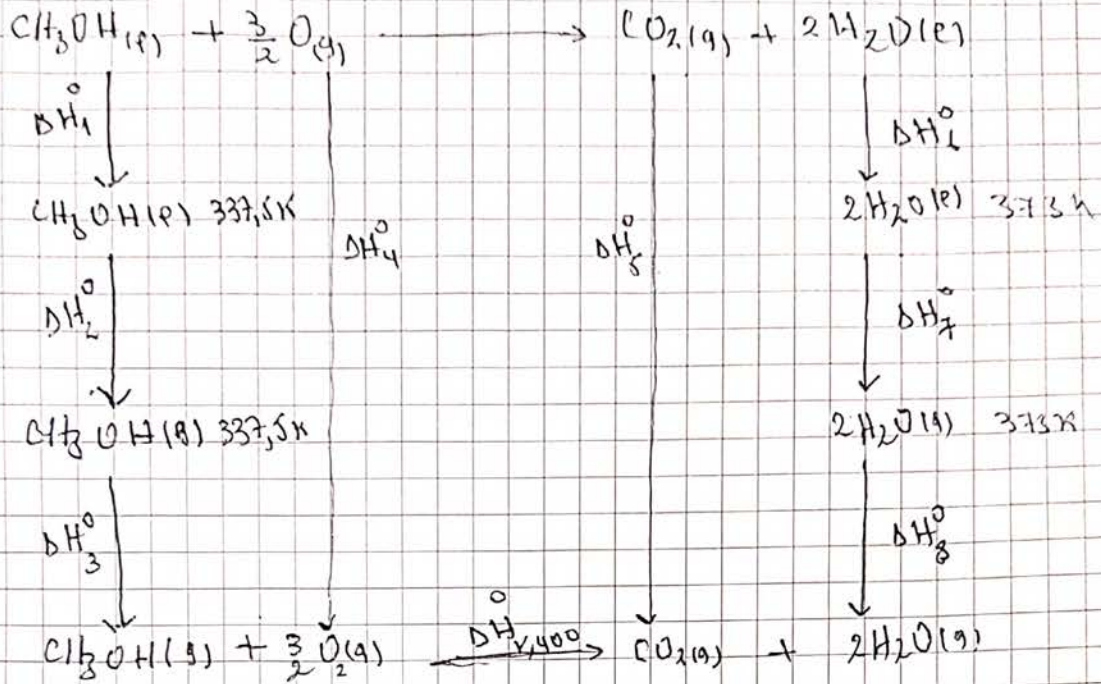 CH₃OH(l) + 3/2 O(g) → CO₂(g) + 2H₂O(l)
ΔH₁° ΔH₆°
CH₃OH(l) 337,5K 2H₂O(l) 373K
ΔH₄° ΔH₅°
ΔH₂° ΔH₇°
CH₃OH(g) 337,5K 2H₂O(g) 373K
ΔH₃° ΔH₈°
CH₃OH(g) + 3/2 O₂(g) ΔH°r,400 → CO₂(g) + 2H₂O(g)